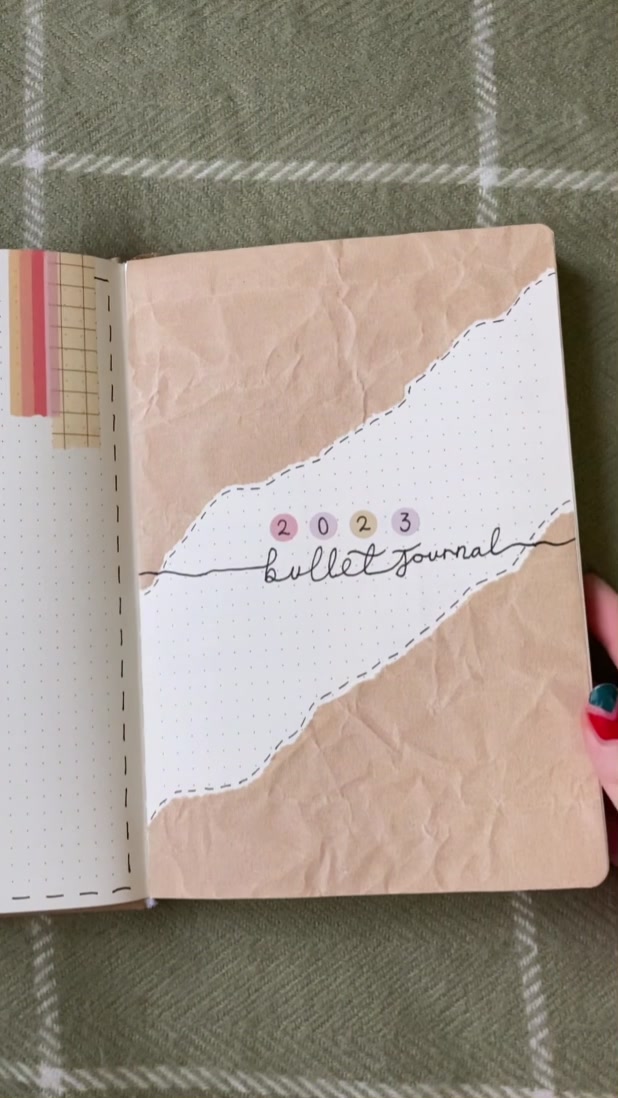 2023
bullet journal